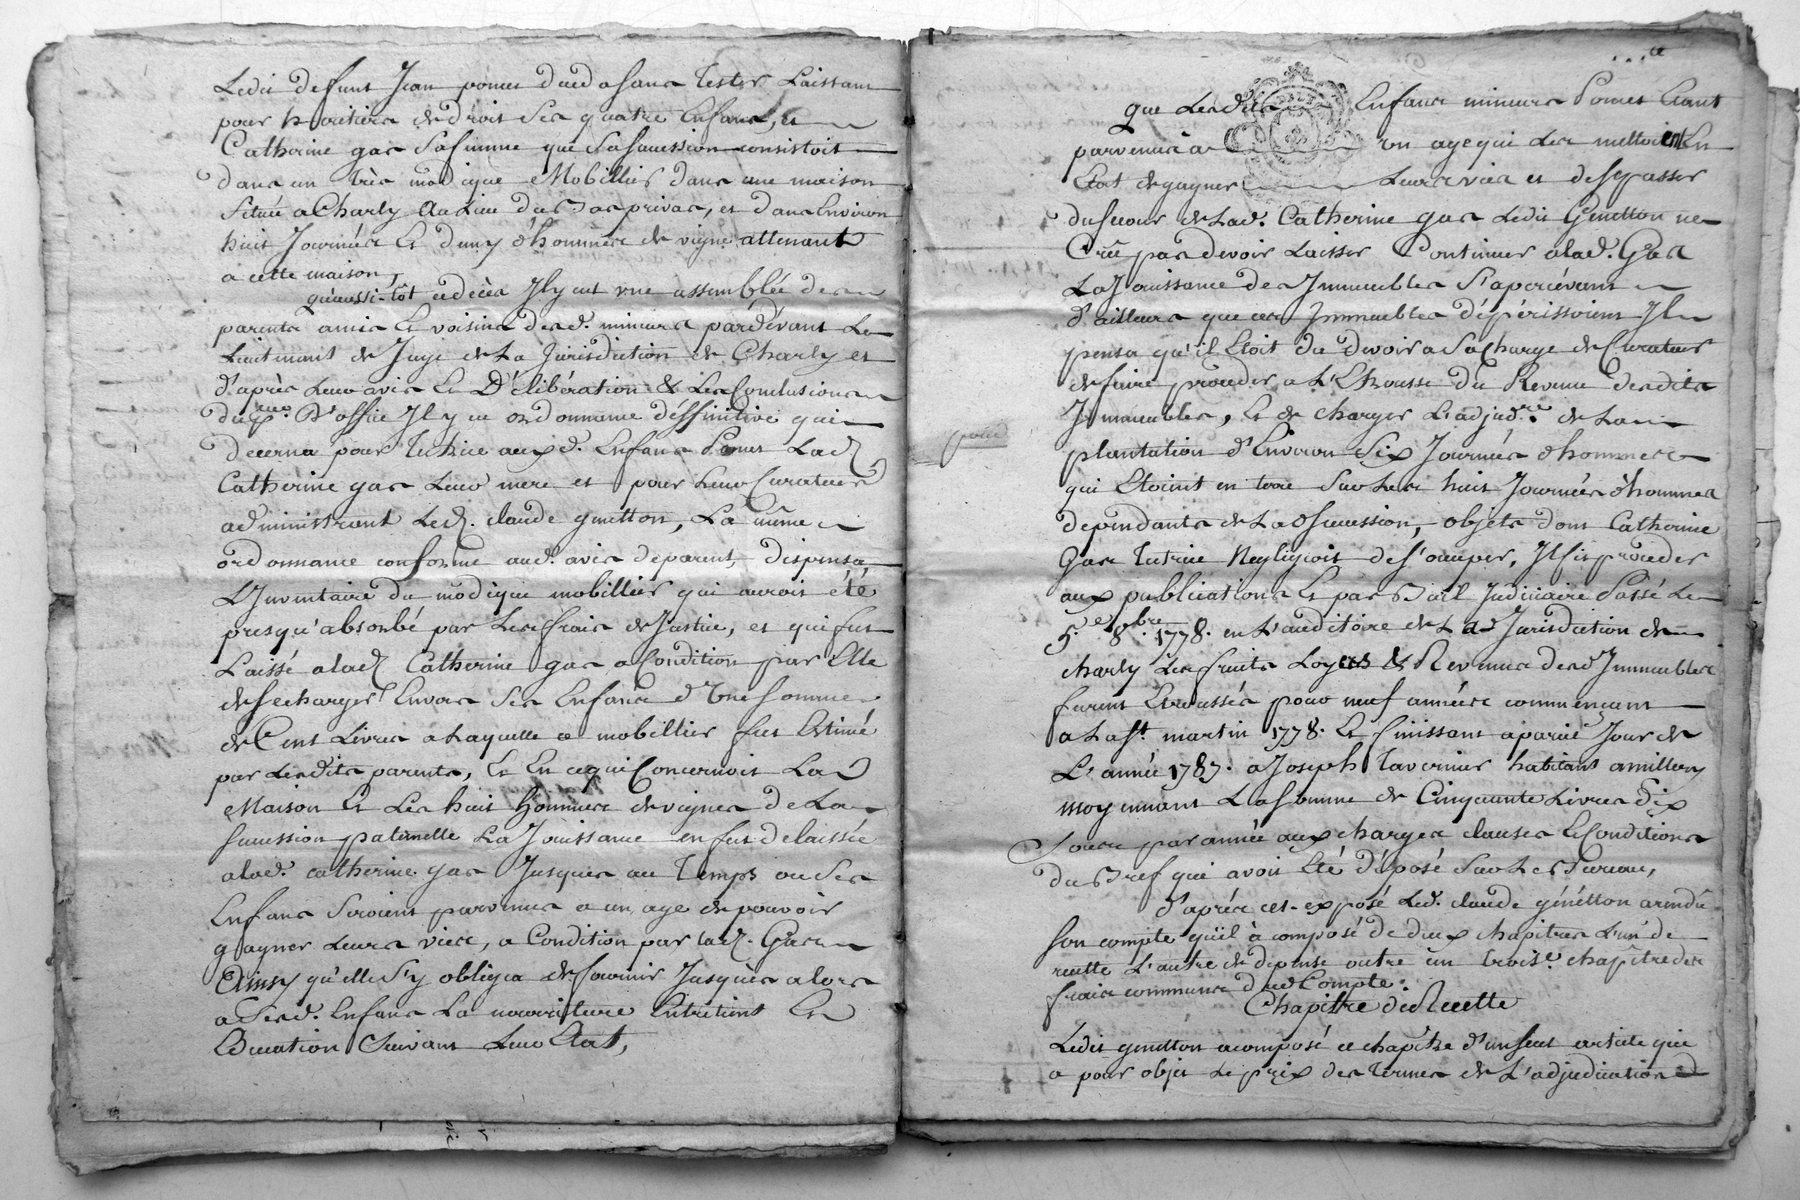 Ledit defunt Jean pomet decedé sans tester Laissant
pour heritiers de droit Ses quatre Enfans, et
Catherine gas Sa femme que Sa succession consistoit
dans un très modique Mobillier dans une maison
Située a Charly Au Lieu du Bas privas, et dans Environ
huit Journées Et demy d'hommées de vigne attenants
a cette maison,
qu'aussi-tôt ce decès Il y eut une assemblée des
parents amis Et voisins desd. mineurs pardevant Le
Lieutenant de Juge de La Jurisdiction de Charly et
d'après Leur avis Et Délibération & Les Conclusions
du D'office Il y eut ordonnance déffinitive qui
decerna pour Tutrice auxd. Enfans Pomet Lad.
Catherine gas Leur mere et pour Leur Curateur
administrant Led. claude genetton, La même
ordonnance conforme aud. avis de parent, dispensa
L'Inventaire du modique mobillier qui auroit été
presqu'absorbé par Les frais de Justice, et qui fut
Laissé a lad. Catherine gas a Condition par Elle
de se charger Envers Ses Enfans d'Une Somme
de Cent Livres a Laquelle ce mobillier fut Estimé
par Lesdits parents, Et En ce qui Concernoit La
Maison Et Les huit hommées de vignes de La
Succession paternelle La Jouissance en fut delaissée
a lad. catherine gas Jusques au Temps ou Ses
Enfans Seroient parvenus a un age de pouvoir
gagner Leurs vies, a Condition par lad. Gas
Ainsy qu'elle S'y obligea de fournir Jusques alors
a Sesd. Enfans La nourriture Entretient Et
Education Suivant Leur Etat,
que Lesdits Enfans mineurs Pomet Etant
parvenus a un age qui les mettoient En
Etat de gagner Leurs vies et de se passer
du secour de Lad. Catherine gas Ledit Genetton ne
Crût pas devoir Laisser Continuer a lad. Gas
La Jouissance des Immeubles S'apercevant
d'ailleurs que ces Immeubles dépérissoient Il
pensa qu'il Etoit du devoir a Sa Charge de Curateur
de faire proceder a L'Ehousse du Revenu desdits
Immeubles, Et de charger L'adjud.re de La
plantation d'Environ Six Journées d'hommées
qui Etoient en terre Sur Les huit Journées d'hommées
dependants de Lad Succession, objets dont Catherine
Gas Tutrice Negligeoit de s'occuper, Il fit proceder
aux publications Et par Bail Judiciaire Passé Le
5.e 8.bre 1778. en L'auditoire de Lad Jurisdiction de
charly Les fruits Loyers & Revenus desd Immeubles
furent Etroussés pour neuf années commençant
a La St. martin 1778. Et finissant a pareil Jour de
L'année 1787. a Joseph Tavernier habitant a millery
moyennant La Somme de Cinquante Livres dix
Sous par année aux charges clauses Et Conditions
du Bref qui avoit Eté déposé Sur Le Bureau,
d'après cet exposé Led. claude génétton a rendû
Son compte qu'il à composé de deux chapitres L'un de
recette L'autre de depense outre un troise. chapitre des
fraix communs dud Compte.
Chapitre de Recette
Ledit genetton a composé ce chapitre d'un seul article qui
a pour objet Le prix des Termes de L'adjudication